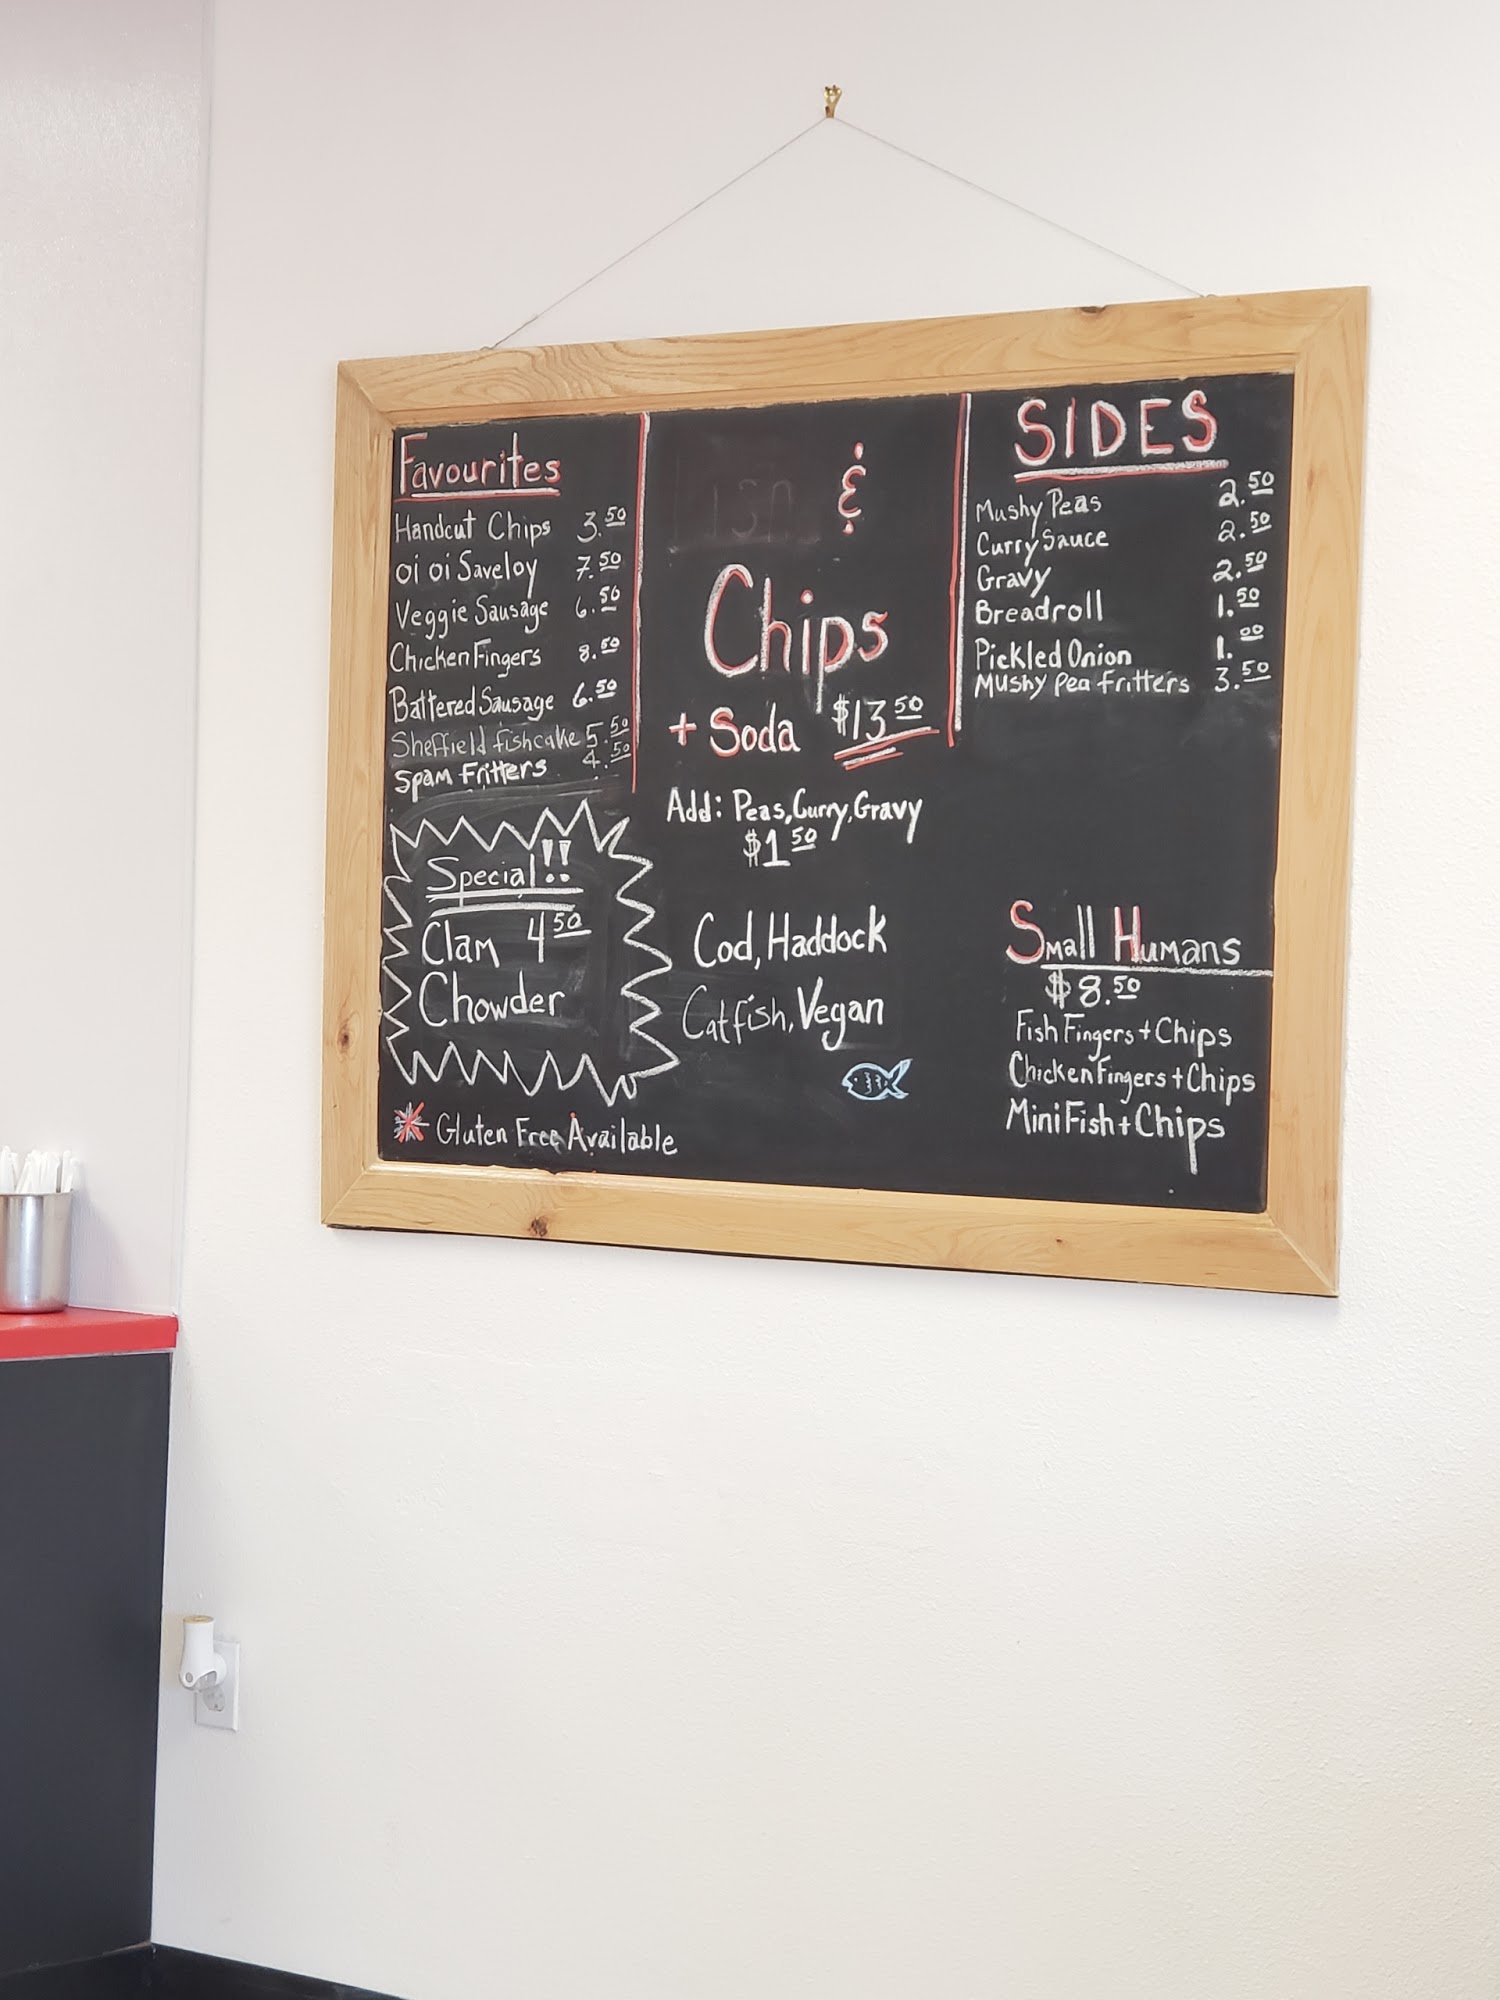 Favourites
Handcut Chips 3.50
oi oi Saveloy 7.50
Veggie Sausage 6.50
Chicken Fingers 8.50
Battered Sausage 6.50
Sheffield fishcake 5.50
Spam Fritters 4.50
Special!!
Clam 4.50
Chowder
Gluten Free Available
&
Chips
+ Soda $13.50
Add: Peas, Curry, Gravy
$1.50
Cod, Haddock
Catfish, Vegan
SIDES
Mushy Peas 2.50
Curry Sauce 2.50
Gravy 2.50
Breadroll 1.50
Pickled Onion 1.00
Mushy Pea fritters 3.50
Small Humans
$8.50
Fish Fingers + Chips
Chicken Fingers + Chips
Mini Fish + Chips